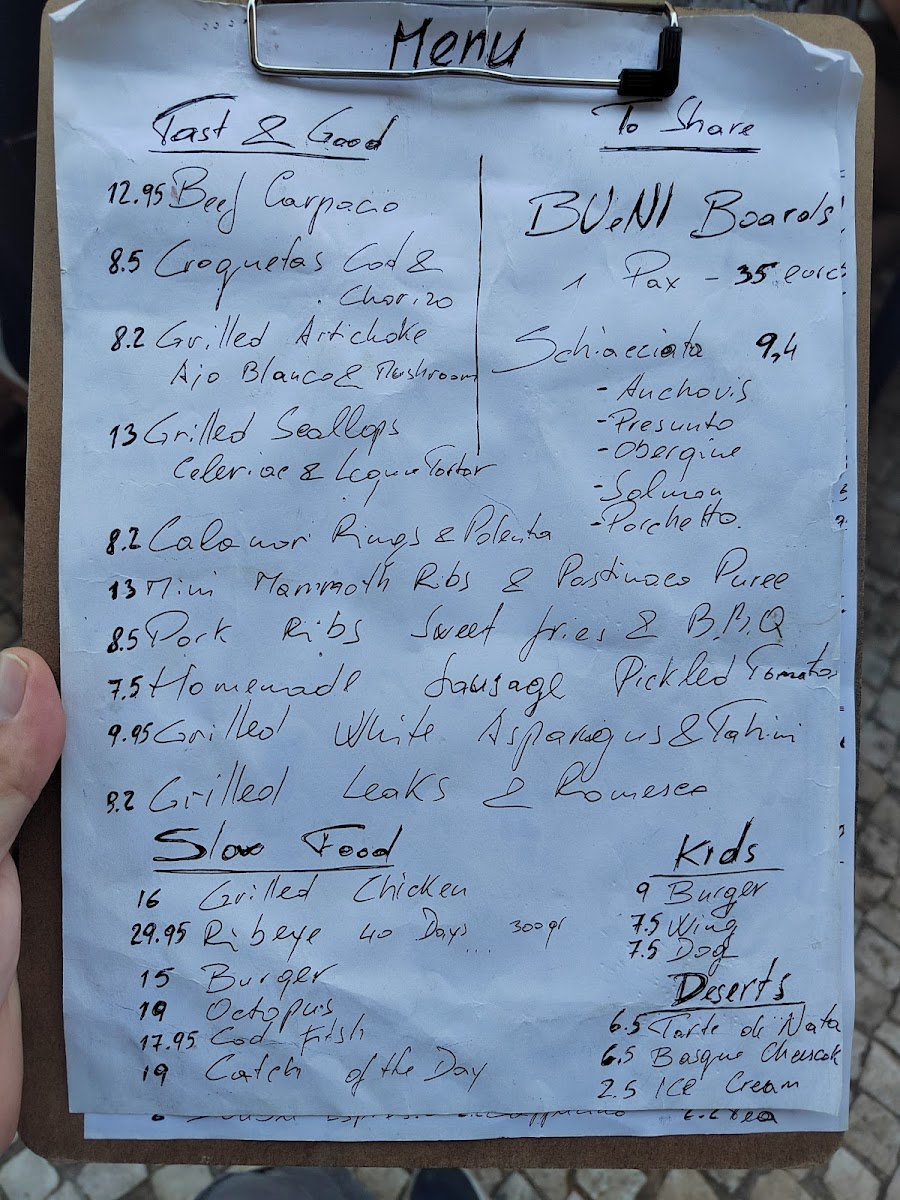 Menu
Fast & Good
12.95 Beef Carpacio
8.5 Croquetas Cod &
Chorizo
8.2 Grilled Artichoke
Ajo Blanco & Mushroom
13 Grilled Scallops
Celeriac & Tartar
8.2 Calamari Rings & Polenta
13 Mini Mammoth Ribs & Pastinaca Puree
8.5 Pork Ribs Sweet fries & B.B.Q
7.5 Homemade Sausage Pickled Tomato
9.95 Grilled White Asparagus & Tahini
8.2 Grilled Leaks & Romesco
To Share
BUeNI Boards
1 Pax - 35 euros
Schiacciata 9,4
- Anchovis
- Presunto
- Obergine
- Salmon
- Porchetta.
Slow Food
16 Grilled Chicken
29.95 Ribeye 40 Days ... 300gr
15 Burger
19 Octopus
17.95 Cod Fitsh
19 Catch of the Day
Kids
9 Burger
7.5 Wing
7.5 Dog
Deserts
6.5 Tarte de Nata
6,5 Basque Cheescak
2.5 ICE Cream